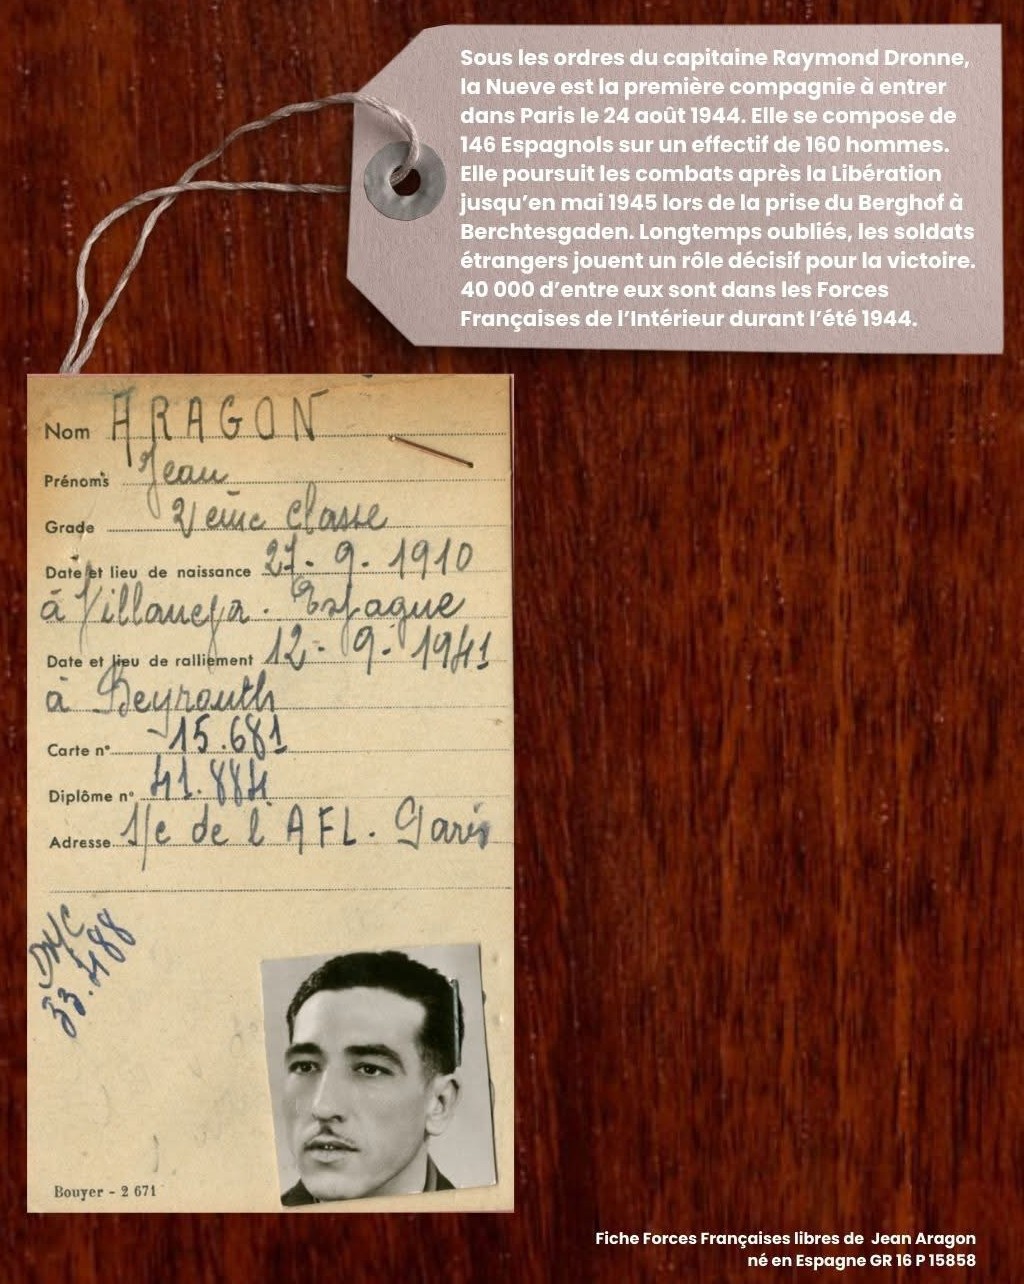 Sous les ordres du capitaine Raymond Dronne,
la Nueve est la première compagnie à entrer
dans Paris le 24 août 1944. Elle se compose de
146 Espagnols sur un effectif de 160 hommes.
Elle poursuit les combats après la Libération
jusqu’en mai 1945 lors de la prise du Berghof à
Berchtesgaden. Longtemps oubliés, les soldats
étrangers jouent un rôle décisif pour la victoire.
40 000 d’entre eux sont dans les Forces
Françaises de l’Intérieur durant l’été 1944.
Nom ARAGON
Prénoms Jean
Grade 2eme Classe
Date et lieu de naissance 27-9-1910
à Espagne
Date et lieu de ralliement 12-9-1941
à Beyrouth
Carte n° 15.681
Diplôme n° 41.884
Adresse S/c de l'AFL. Paris
33.488
Bouyer - 2 671
Fiche Forces Françaises libres de Jean Aragon
né en Espagne GR 16 P 15858